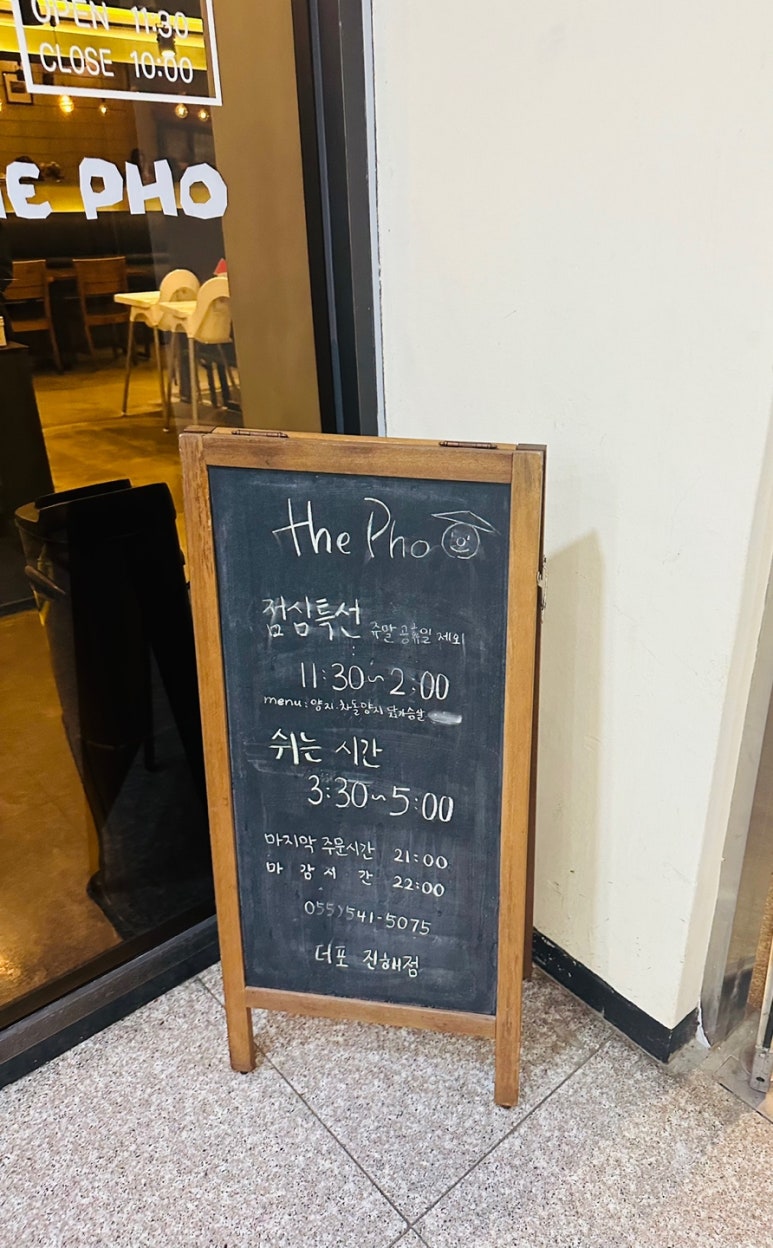 OPEN 11:30
CLOSE 10:00
PHO
the Pho
점심특선 주말 공휴일 제외
11:30~2:00
menu: 양지·차돌양지 닭가슴살
쉬는 시간
3:30~5:00
마지막 주문시간 21:00
마감시간 22:00
055)541-5075
더포 진해점